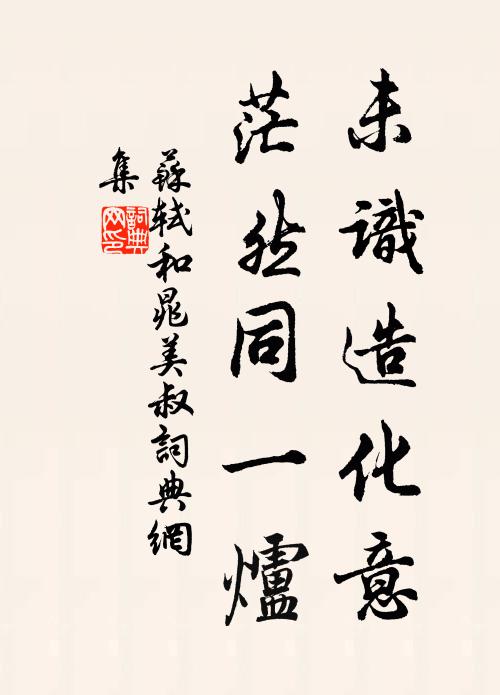 未識造化意
茫然同一爐
蘇軾和晁美叔詞典網
集
詞典
网印